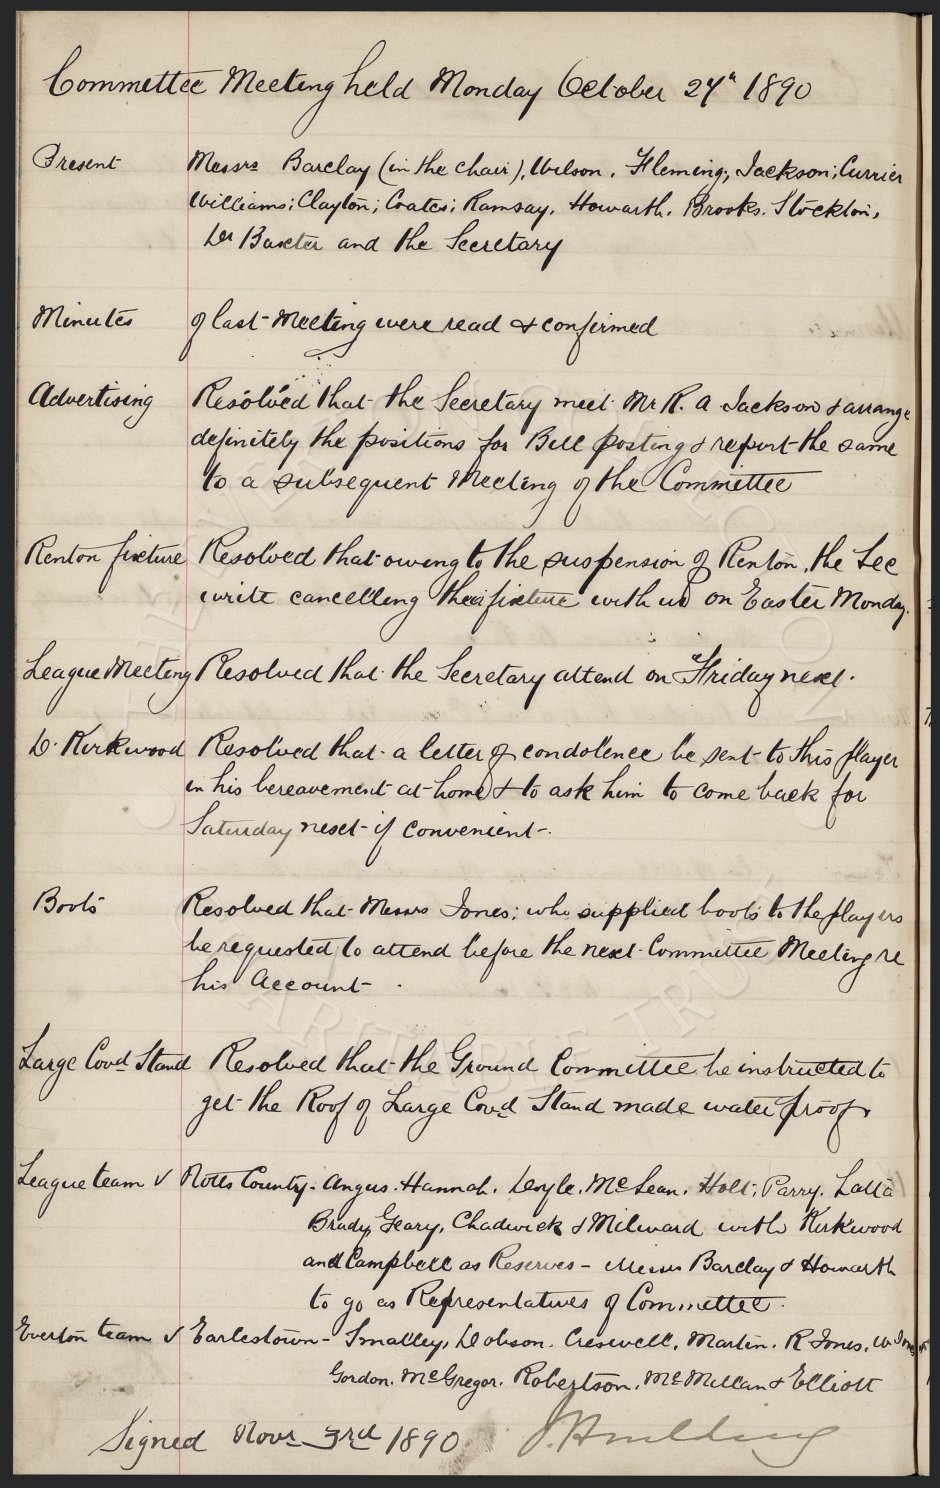 Committee Meeting held Monday October 27th 1890
Present Messrs Barclay (in the chair), Wilson, Fleming, Jackson; Currier
Williams; Clayton; Coates; Ramsay, Howarth, Brooks, Stockton,
Dr Baxter and the Secretary
Minutes of last Meeting were read & confirmed
Advertising Resolved that the Secretary meet Mr R. A Jackson & arrange
definitely the positions for Bill posting & report the same
to a subsequent Meeting of the Committee
Renton fixture Resolved that owing to the suspension of Renton, the Sec
write cancelling their fixture with us on Easter Monday.
League Meeting Resolved that the Secretary attend on Friday next.
D. Kirkwood Resolved that a letter of condolence be sent to this player
in his bereavement at home & to ask him to come back for
Saturday next if convenient.
Boots Resolved that Messrs Jones; who supplied boots to the players
be requested to attend before the next Committee Meeting re
his Account.
Large Covd Stand Resolved that the Ground Committee be instructed to
get the Roof of Large Covd Stand made water proof
League team v Notts County - Angus, Hannah, Doyle, McLean, Holt, Parry, Latta
Brady, Geary, Chadwick & Milward with Kirkwood
and Campbell as Reserves - Messrs Barclay & Howarth
to go as Representatives of Committee.
Everton team v Earlestown - Smalley, Dobson, Creswell, Martin, R Jones, W Jones
Gordon, McGregor, Robertson, McMillan & Elliott
Signed Novr 3rd 1890